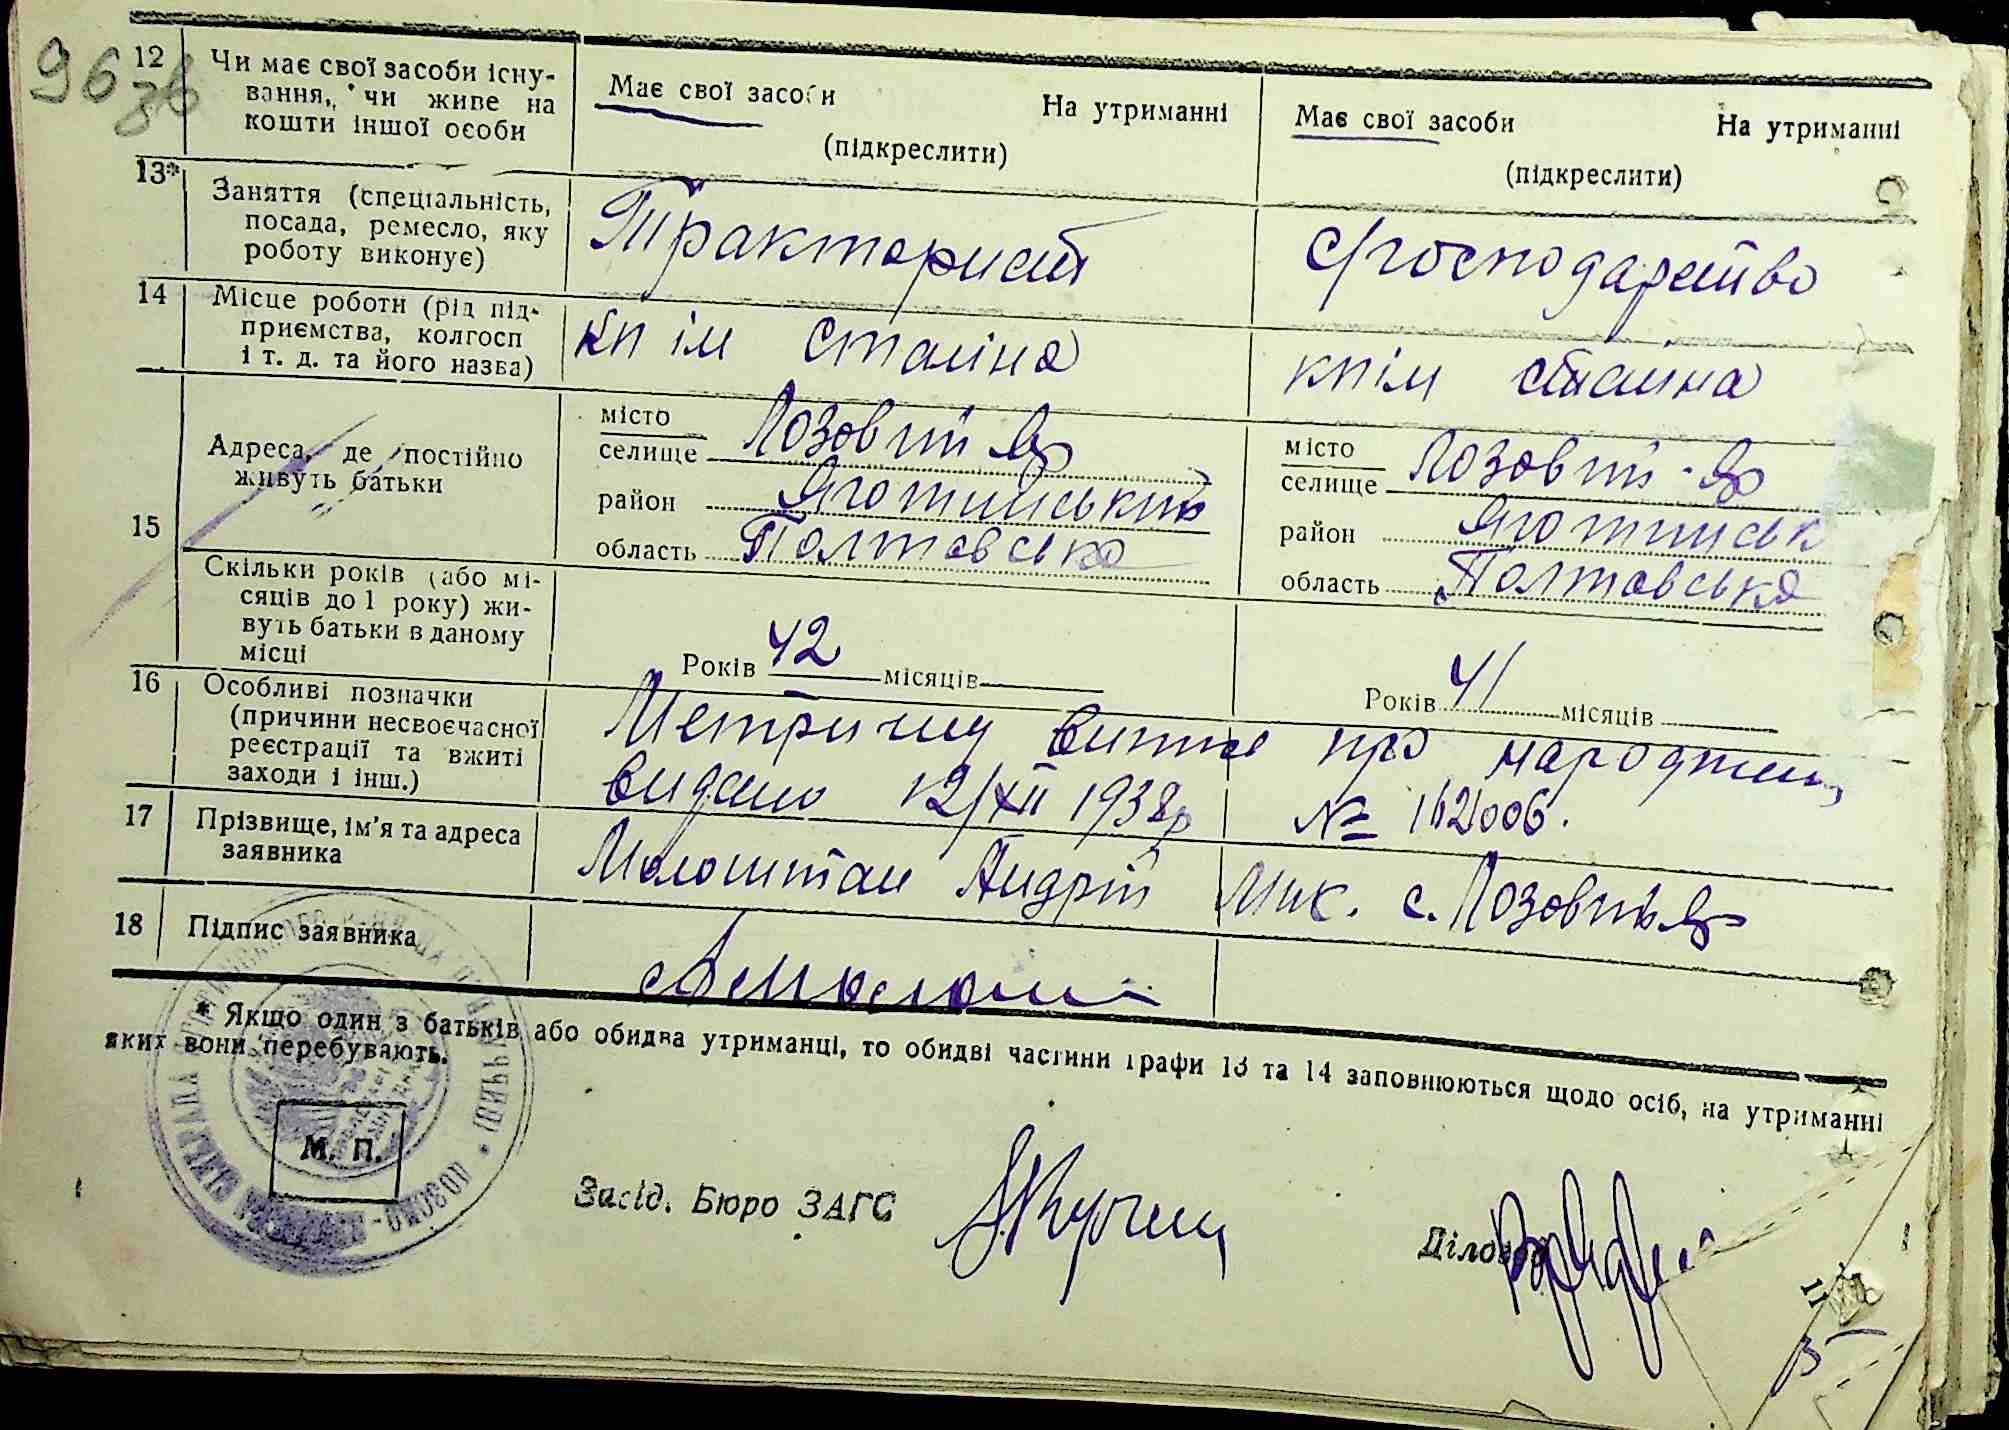 96 зв
12 Чи має свої засоби існу-
вання, чи живе на
кошти іншої особи
Має свої засоби На утриманні
(підкреслити)
Має свої засоби На утриманні
(підкреслити)
13* Заняття (спеціальність,
посада, ремесло, яку
роботу виконує)
Тракторист
с/господарство
14 Місце роботи (рід під-
приємства, колгосп
і т. д. та його назва)
кп ім Сталіна
кп ім Сталіна
15 Адреса, де постійно
живуть батьки
місто
селище Лозовий Яр
район Яготинський
область Полтавська
місто
селище Лозовий-Яр
район Яготинськ
область Полтавська
Скільки років (або мі-
сяців до 1 року) жи-
вуть батьки в даному
місці
Років 42 місяців
Років 41 місяців
16 Особливі позначки
(причини несвоєчасної
реєстрації та вжиті
заходи і інш.)
Метричну про народжен
видано 12/XII 1938р № 112006.
17 Прізвище, ім'я та адреса
заявника
Молоштан Андрій Мик. с. Лозовий Яр
18 Підпис заявника
* Якщо один з батьків або обидва утриманці, то обидві частини графи 13 та 14 заповнюються щодо осіб, на утриманні
яких вони перебувають.
М. П.
Завід. Бюро ЗАГС
Діловод